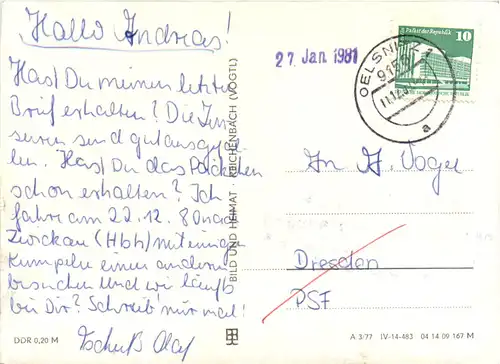 Hallo Andreas!
Hast Du meinen letzten
Brief erhalten? Die
sind gut
Hast Du das Päckchen
schon erhalten? Ich
fahre am 22.12.80 nach
Zwickau (Hbh) mit einigen
Kumpeln einen anderen
besuchen und wie läufts
bei Dir? Schreib mir mal!
Tschüß Olaf
DDR 0,20 M
BILD UND HEIMAT · REICHENBACH (VOGTL)
27 Jan 1981
Palast der Republik
10
OELSNITZ
a
An A. Vogel
Dresden
PSF
A 3/77 IV-14-483 04 14 09 167 M